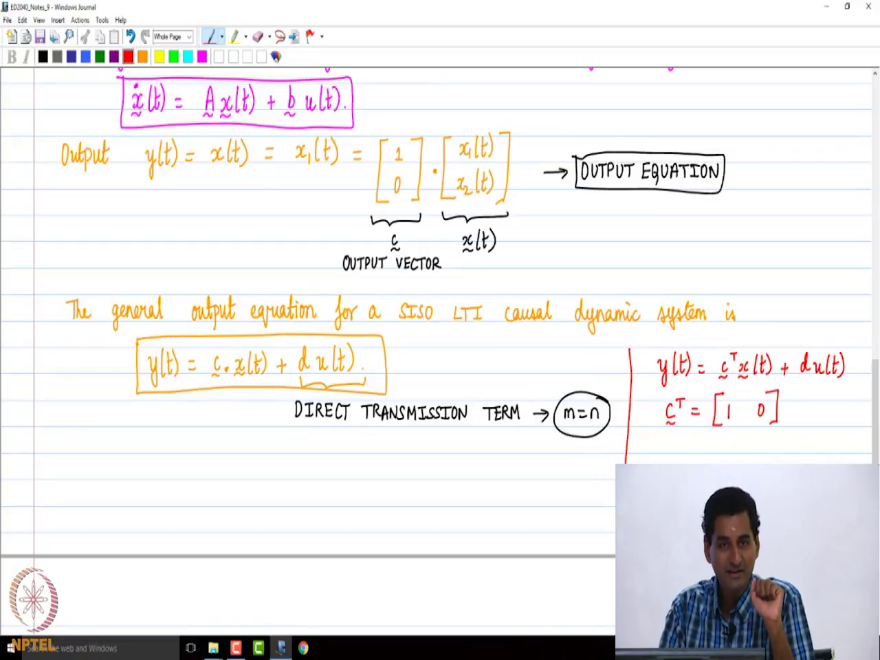 ED2040_Notes_9 - Windows Journal
File Edit View Insert Actions Tools Help
Whole Page
B I
ẋ(t) = A x(t) + b u(t).
Output y(t) = x(t) = x₁(t) = [1 0] · [x₁(t) x₂(t)] → OUTPUT EQUATION
c x(t)
OUTPUT VECTOR
The general output equation for a SISO LTI causal dynamic system is
y(t) = c · x(t) + d u(t).
DIRECT TRANSMISSION TERM → m=n
y(t) = cᵀx(t) + du(t)
cᵀ = [1 0]
NPTEL
the web and Windows